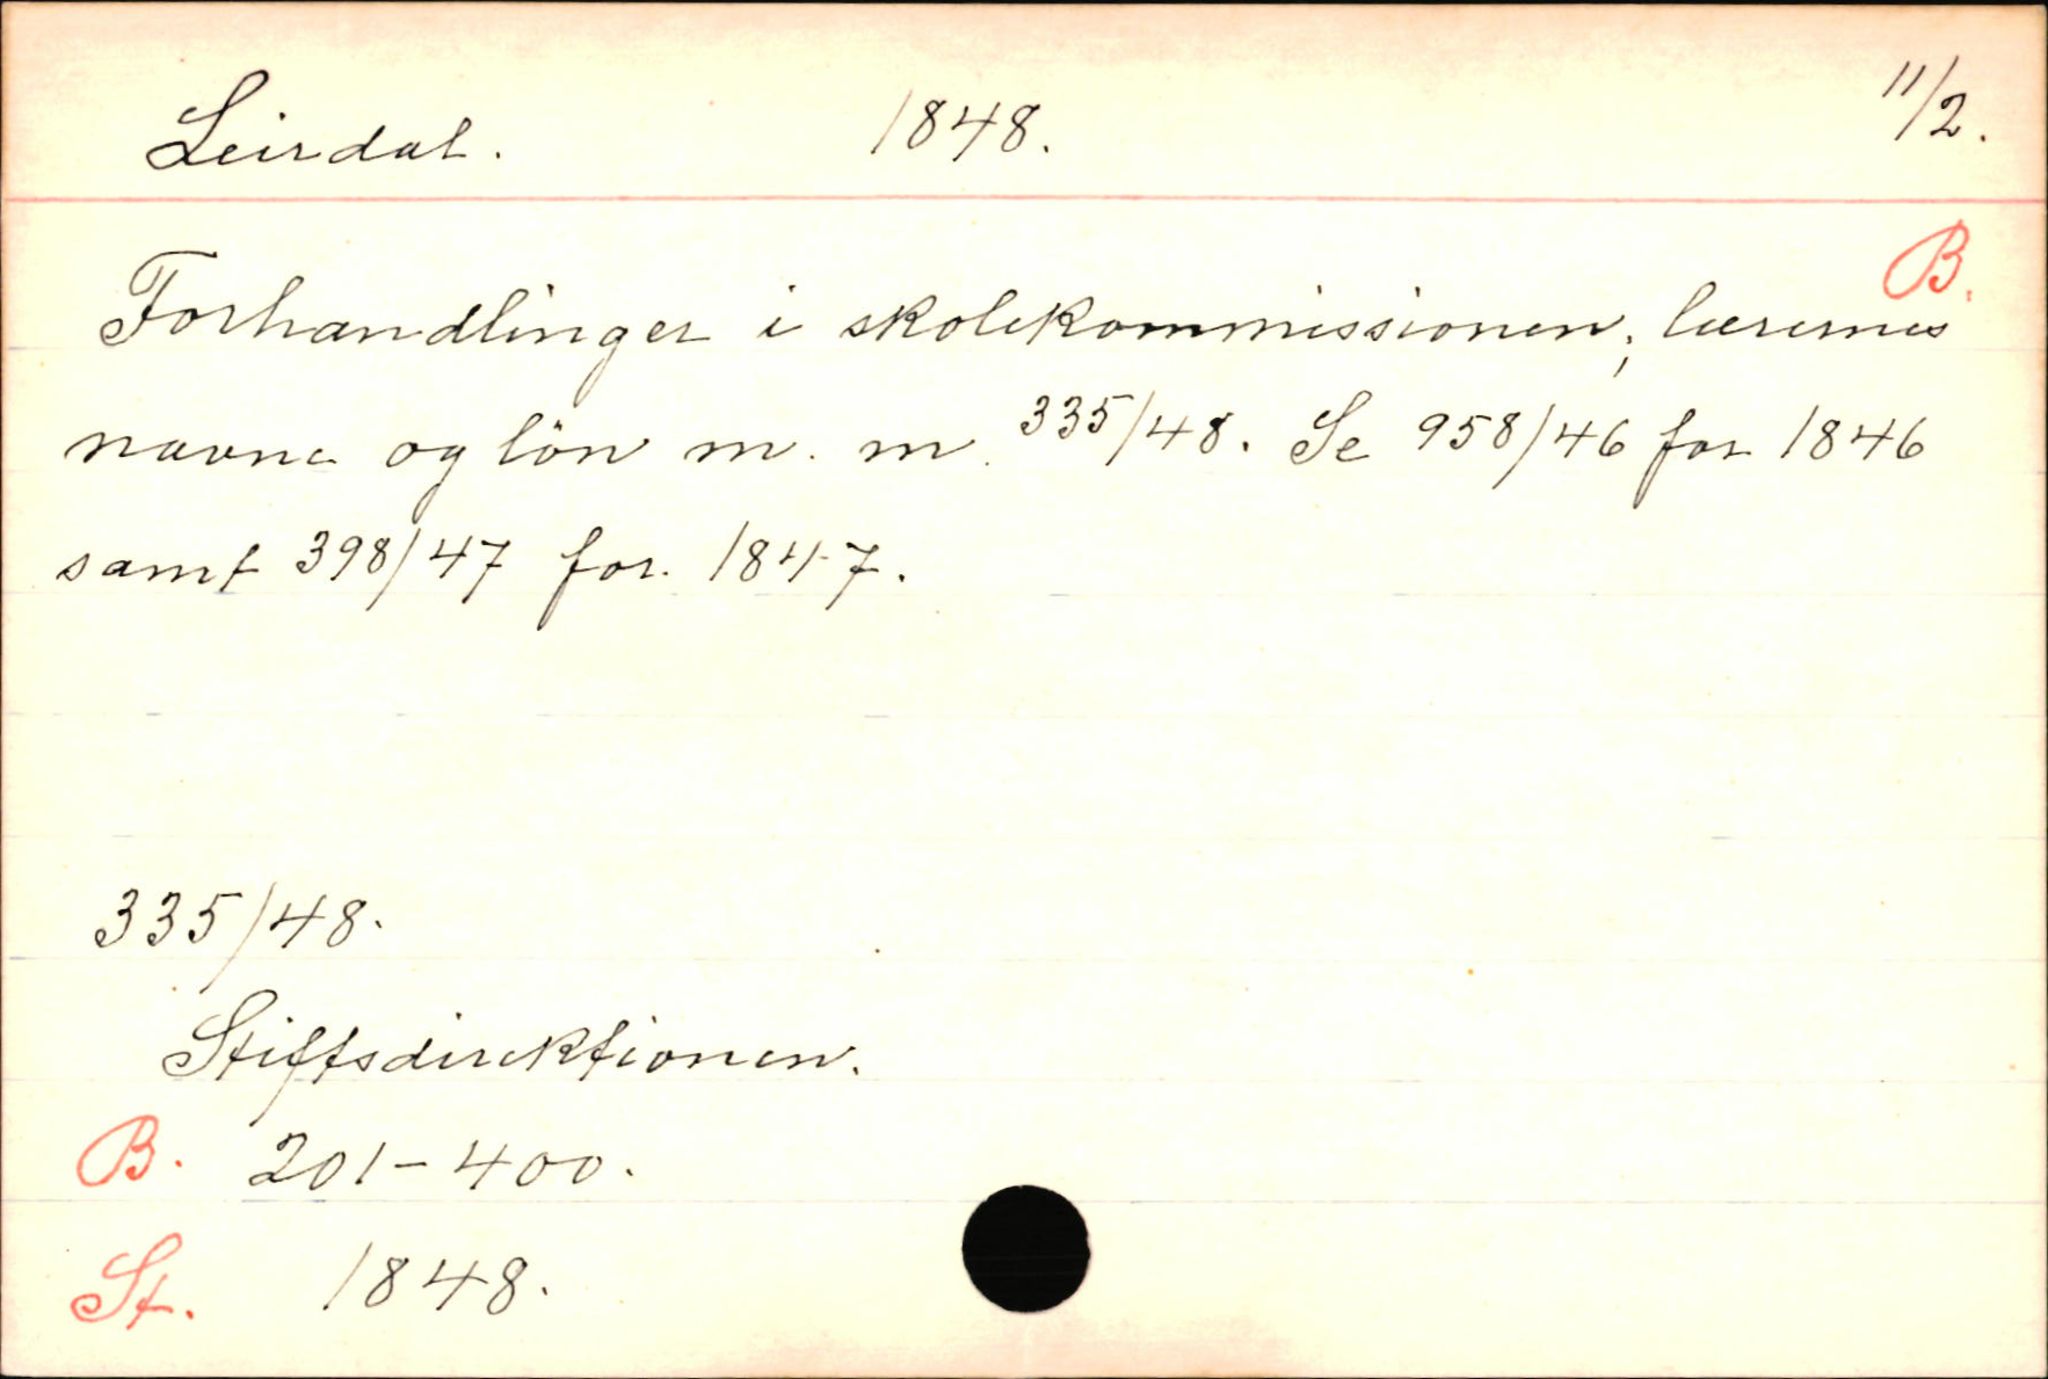 Leirdal. 1848. 11/2.
B.
Forhandlinger i skolekommissionen; lærernes
navne og lön m. m. 335/48. Se 958/46 for 1846
samt 398/47 for 1847.
335/48.
Stiftsdirektionen.
B. 201-400.
St. 1848.